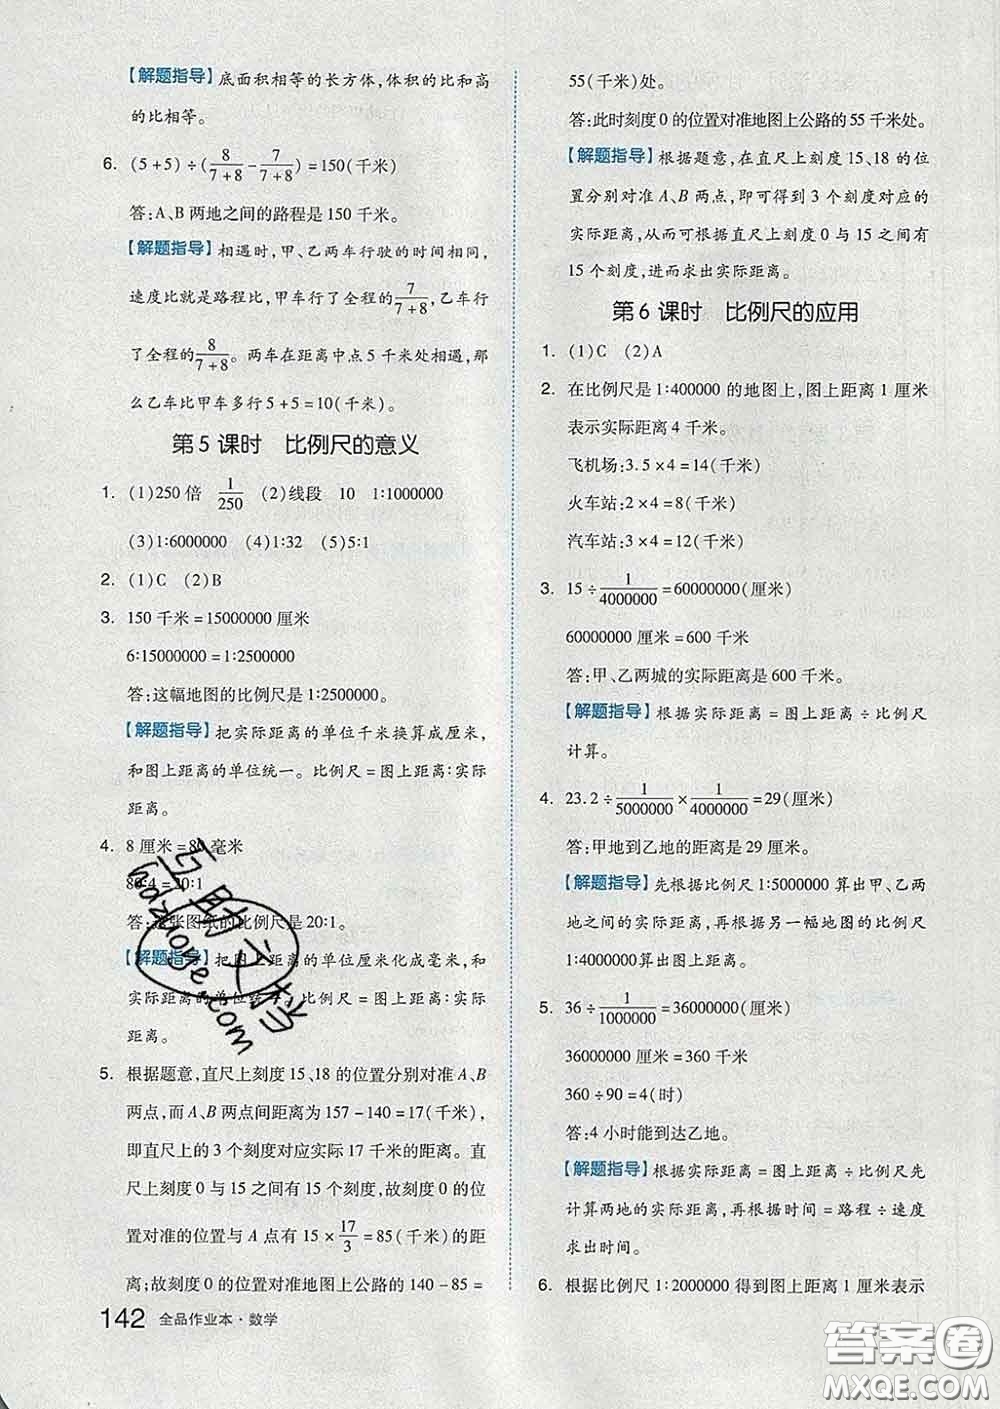 【解题指导】底面积相等的长方体,体积的比和高
的比相等。
6. (5+5)÷(8/(7+8)-7/(7+8))=150(千米)
答:A、B 两地之间的路程是 150 千米。
【解题指导】相遇时,甲、乙两车行驶的时间相同,
速度比就是路程比,甲车行了全程的7/(7+8),乙车行
了全程的8/(7+8)。两车在距离中点 5 千米处相遇,那
么乙车比甲车多行 5+5=10(千米)。
第 5 课时 比例尺的意义
1. (1)250 倍 1/250 (2)线段 10 1∶1000000
(3)1∶6000000 (4)1∶32 (5)5∶1
2. (1)C (2)B
3. 150 千米=15000000 厘米
6∶15000000=1∶2500000
答:这幅地图的比例尺是 1∶2500000。
【解题指导】把实际距离的单位千米换算成厘米,
和图上距离的单位统一。比例尺=图上距离∶实际
距离。
4. 8 厘米=80 毫米
80∶4=20∶1
答:这张图纸的比例尺是 20∶1。
【解题指导】把图上距离的单位厘米化成毫米,和
实际距离的单位统一。比例尺=图上距离∶实际
距离。
5. 根据题意,直尺上刻度 15、18 的位置分别对准 A、B
两点,而 A、B 两点间距离为 157-140=17(千米),
即直尺上的 3 个刻度对应实际 17 千米的距离。直
尺上刻度 0 与 15 之间有 15 个刻度,故刻度 0 的位
置对准的位置与 A 点有 15×17/3=85(千米)的距
离;故刻度 0 的位置对准地图上公路的 140-85=
142 全品作业本·数学
55(千米)处。
答:此时刻度 0 的位置对准地图上公路的 55 千米处。
【解题指导】根据题意,在直尺上刻度 15、18 的位
置分别对准 A、B 两点,即可得到 3 个刻度对应的
实际距离,从而可根据直尺上刻度 0 与 15 之间有
15 个刻度,进而求出实际距离。
第 6 课时 比例尺的应用
1. (1)C (2)A
2. 在比例尺是 1∶400000 的地图上,图上距离 1 厘米
表示实际距离 4 千米。
飞机场:3.5×4=14(千米)
火车站:2×4=8(千米)
汽车站:3×4=12(千米)
3. 15÷1/4000000=60000000(厘米)
60000000 厘米=600 千米
答:甲、乙两城的实际距离是 600 千米。
【解题指导】根据实际距离=图上距离÷比例尺
计算。
4. 23.2÷1/5000000×1/4000000=29(厘米)
答:甲地到乙地的距离是 29 厘米。
【解题指导】先根据比例尺 1∶5000000 算出甲、乙两
地之间的实际距离,再根据另一幅地图的比例尺
1∶4000000算出图上距离。
5. 36÷1/1000000=36000000(厘米)
36000000 厘米=360 千米
360÷90=4(时)
答:4 小时能到达乙地。
【解题指导】根据实际距离=图上距离÷比例尺先
计算两地的实际距离,再根据时间=路程÷速度
求出时间。
6. 根据比例尺 1∶2000000 得到图上距离 1 厘米表示
答案圈
MXQE.COM